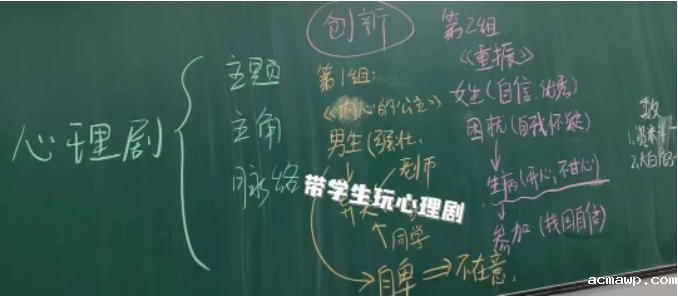 心理剧
主题
主角
脉络
创新
第1组:
《内心的公主》
男生(强壮,
老师
同学
自卑⇒不在意,
第2组
《重振》
女生(自信、优秀)
困扰(自我怀疑)
↓
生病(开心,不甘心)
↓
参加(找回自信)
数
带学生玩心理剧
acmawp.com